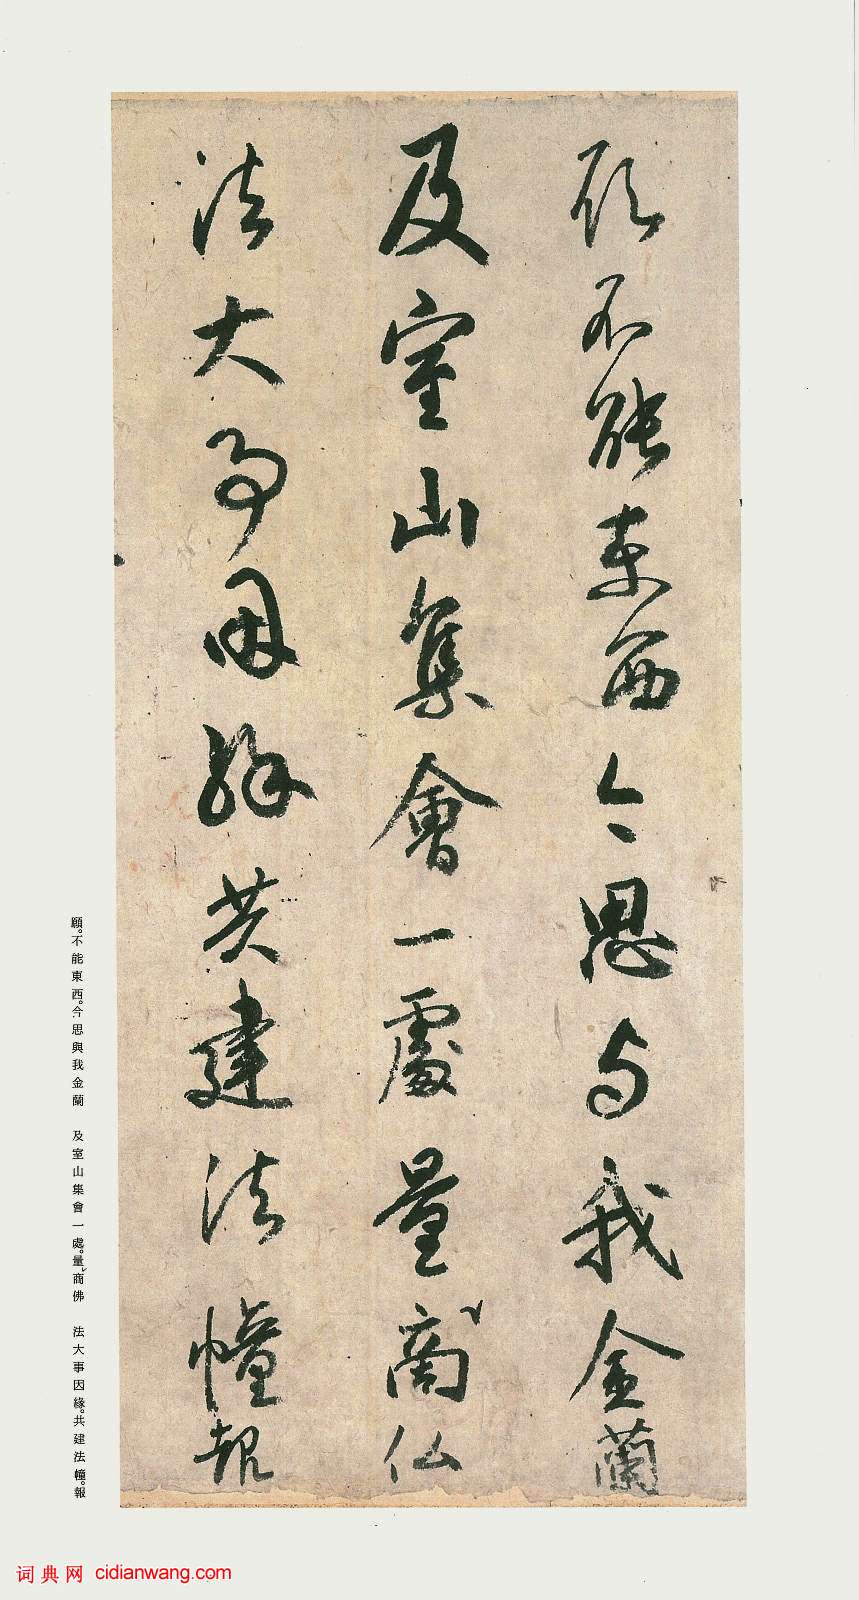 願不能東西今思与我金蘭
及室山集會一處量商仏
法大事因緣共建法幢報
願。不能東西。今思與我金蘭 及室山集會一處。量商佛 法大事因緣。共建法幢。報
词典网 cidianwang.com